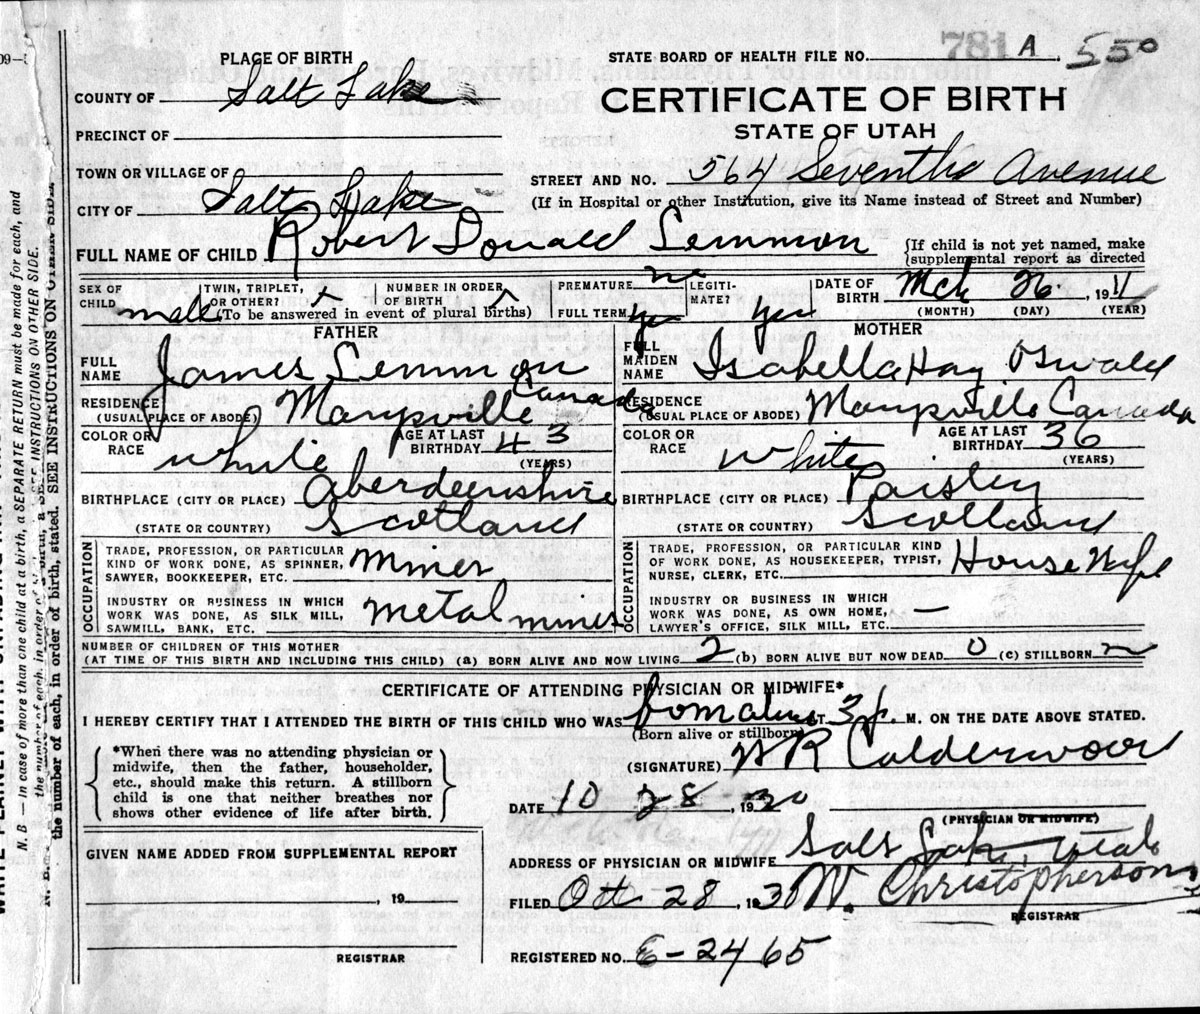 PLACE OF BIRTH
STATE BOARD OF HEALTH FILE NO. 781 A 550
COUNTY OF Salt Lake
CERTIFICATE OF BIRTH
PRECINCT OF
STATE OF UTAH
TOWN OR VILLAGE OF
STREET AND NO. 564 Seventh Avenue
(If in Hospital or other Institution, give its Name instead of Street and Number)
CITY OF Salt Lake
FULL NAME OF CHILD Robert Donald Lemmon
{If child is not yet named, make
{supplemental report as directed
SEX OF CHILD male
TWIN, TRIPLET, OR OTHER?
NUMBER IN ORDER OF BIRTH
(To be answered in event of plural births)
PREMATURE no
FULL TERM yes
LEGITIMATE? yes
DATE OF BIRTH Mch 26, 1911
(MONTH) (DAY) (YEAR)
FATHER
FULL NAME James Lemmon
RESIDENCE (USUAL PLACE OF ABODE) Marysville Canada
COLOR OR RACE white
AGE AT LAST BIRTHDAY 43 (YEARS)
BIRTHPLACE (CITY OR PLACE) Aberdeenshire
(STATE OR COUNTRY) Scotland
OCCUPATION
TRADE, PROFESSION, OR PARTICULAR
KIND OF WORK DONE, AS SPINNER,
SAWYER, BOOKKEEPER, ETC. Miner
INDUSTRY OR BUSINESS IN WHICH
WORK WAS DONE, AS SILK MILL,
SAWMILL, BANK, ETC. Metal mines
MOTHER
FULL MAIDEN NAME Isabella Hay Oswald
RESIDENCE (USUAL PLACE OF ABODE) Marysville Canada
COLOR OR RACE White
AGE AT LAST BIRTHDAY 36 (YEARS)
BIRTHPLACE (CITY OR PLACE) Paisley
(STATE OR COUNTRY) Scotland
OCCUPATION
TRADE, PROFESSION, OR PARTICULAR KIND
OF WORK DONE, AS HOUSEKEEPER, TYPIST,
NURSE, CLERK, ETC. House Wife
INDUSTRY OR BUSINESS IN WHICH
WORK WAS DONE, AS OWN HOME,
LAWYER'S OFFICE, SILK MILL, ETC. —
NUMBER OF CHILDREN OF THIS MOTHER
(AT TIME OF THIS BIRTH AND INCLUDING THIS CHILD) (a) BORN ALIVE AND NOW LIVING 2 (b) BORN ALIVE BUT NOW DEAD 0 (c) STILLBORN
CERTIFICATE OF ATTENDING PHYSICIAN OR MIDWIFE*
I HEREBY CERTIFY THAT I ATTENDED THE BIRTH OF THIS CHILD WHO WAS born alive AT 3 p. M. ON THE DATE ABOVE STATED.
(Born alive or stillborn)
*When there was no attending physician or
midwife, then the father, householder,
etc., should make this return. A stillborn
child is one that neither breathes nor
shows other evidence of life after birth.
(SIGNATURE) W R Calderwood
DATE 10 28, 1930
(PHYSICIAN OR MIDWIFE)
GIVEN NAME ADDED FROM SUPPLEMENTAL REPORT
, 19
REGISTRAR
ADDRESS OF PHYSICIAN OR MIDWIFE Salt Lake, Utah
FILED Oct 28, 1930 W. Christopherson
REGISTRAR
REGISTERED NO. 6-2465
N. B.—In case of more than one child at a birth, a SEPARATE RETURN must be made for each, and
the number of each, in order of birth, stated. SEE INSTRUCTIONS ON OTHER SIDE.